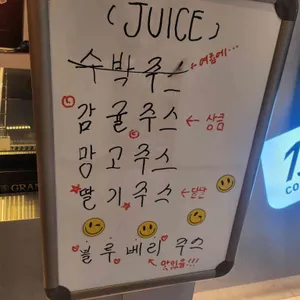 (JUICE)
수박주스 ← 여름에...
감귤주스 ← 상큼
망고주스
딸기주스 ← 달달
블루베리 주스
맛있음!!!
GRAN
CO